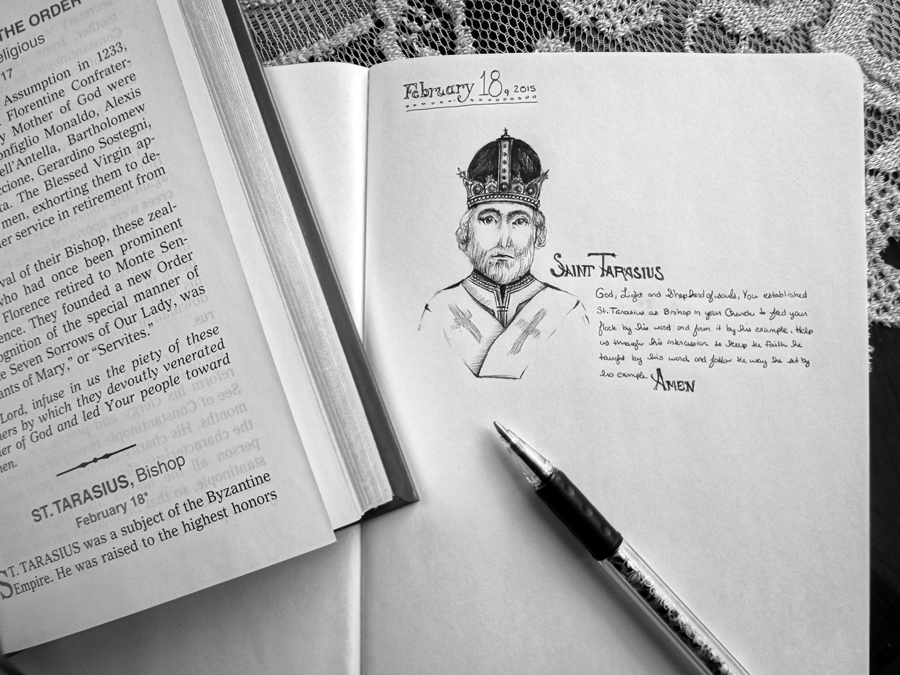 THE ORDER
eligious
17
Assumption in 1233,
Florentine Confrater-
y Mother of God were
onfiglio Monaldo, Alexis
ell'Antella, Bartholomew
ccione, Gerardino Sostegni,
ta. The Blessed Virgin ap-
men, exhorting them to de-
er service in retirement from
val of their Bishop, these zeal-
who had once been prominent
Florence retired to Monte Sen-
ence. They founded a new Order
ognition of the special manner of
e Seven Sorrows of Our Lady, was
ants of Mary," or "Servites."
Lord, infuse in us the piety of these
hers by which they devoutly venerated
er of God and led Your people toward
en.
ST. TARASIUS, Bishop
February 18*
ST. TARASIUS was a subject of the Byzantine
Empire. He was raised to the highest honors
February 18, 2015
SAINT TARASIUS
God, Light and Shepherd of souls, You established
St. Tarasius as Bishop in your Church to feed your
flock by his word and form it by his example. Help
us through his intercession to keep the Faith he
taught by his word and follow the way he set by
his example. AMEN